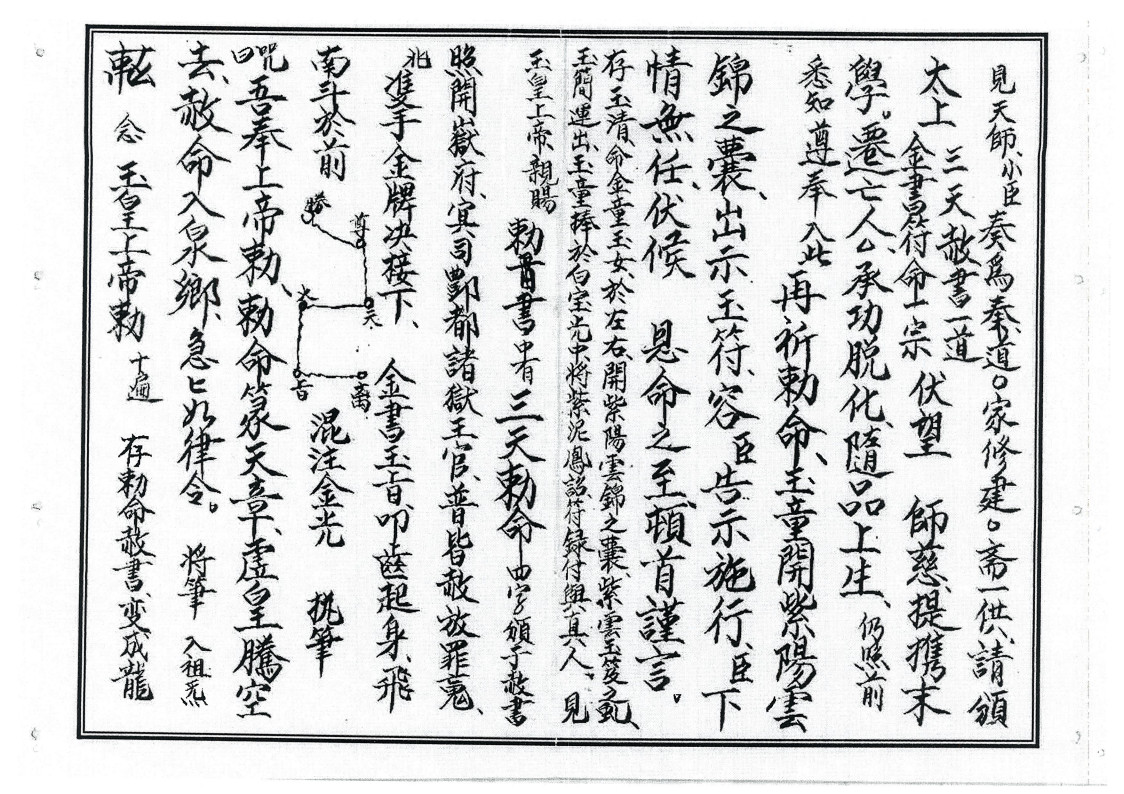 見天師小臣奏為奏道○家修建○斋一供、請頒
太上
三天赦書一道
金書符命一宗
伏望 師慈提携末
學。遷亡人厶承功脱化、隨品上生、仍照前
悉如尊奉入此再祈勅命、玉童開紫陽雲
錦之囊、出示玉符、容臣告示施行、臣下
情無任、伏候 恩命之至、頓首謹言。
存玉清命金童玉女、於左右、開紫陽雲錦之囊、紫雲玉笈之
玉簡、運出玉童捧於白宝光中、將紫泥鳳詔符録付與真人。見
玉皇上帝親賜 勅書中有三天勅命由字頒予赦書
照開嶽府、冥司酆都諸獄王官、普皆赦放罪䰟、
隻手金牌决接下、 金書玉旨、叩齒起身、飛
北
南斗於前
尊
天
音
混注金光 执筆
咒曰吾奉上帝勅、勅命篆天章、虛皇騰空
去、赦命入泉鄉、急匕如律令。 将筆入祖炁
念 玉皇上帝勅 十遍 存勅命赦書、变成龍